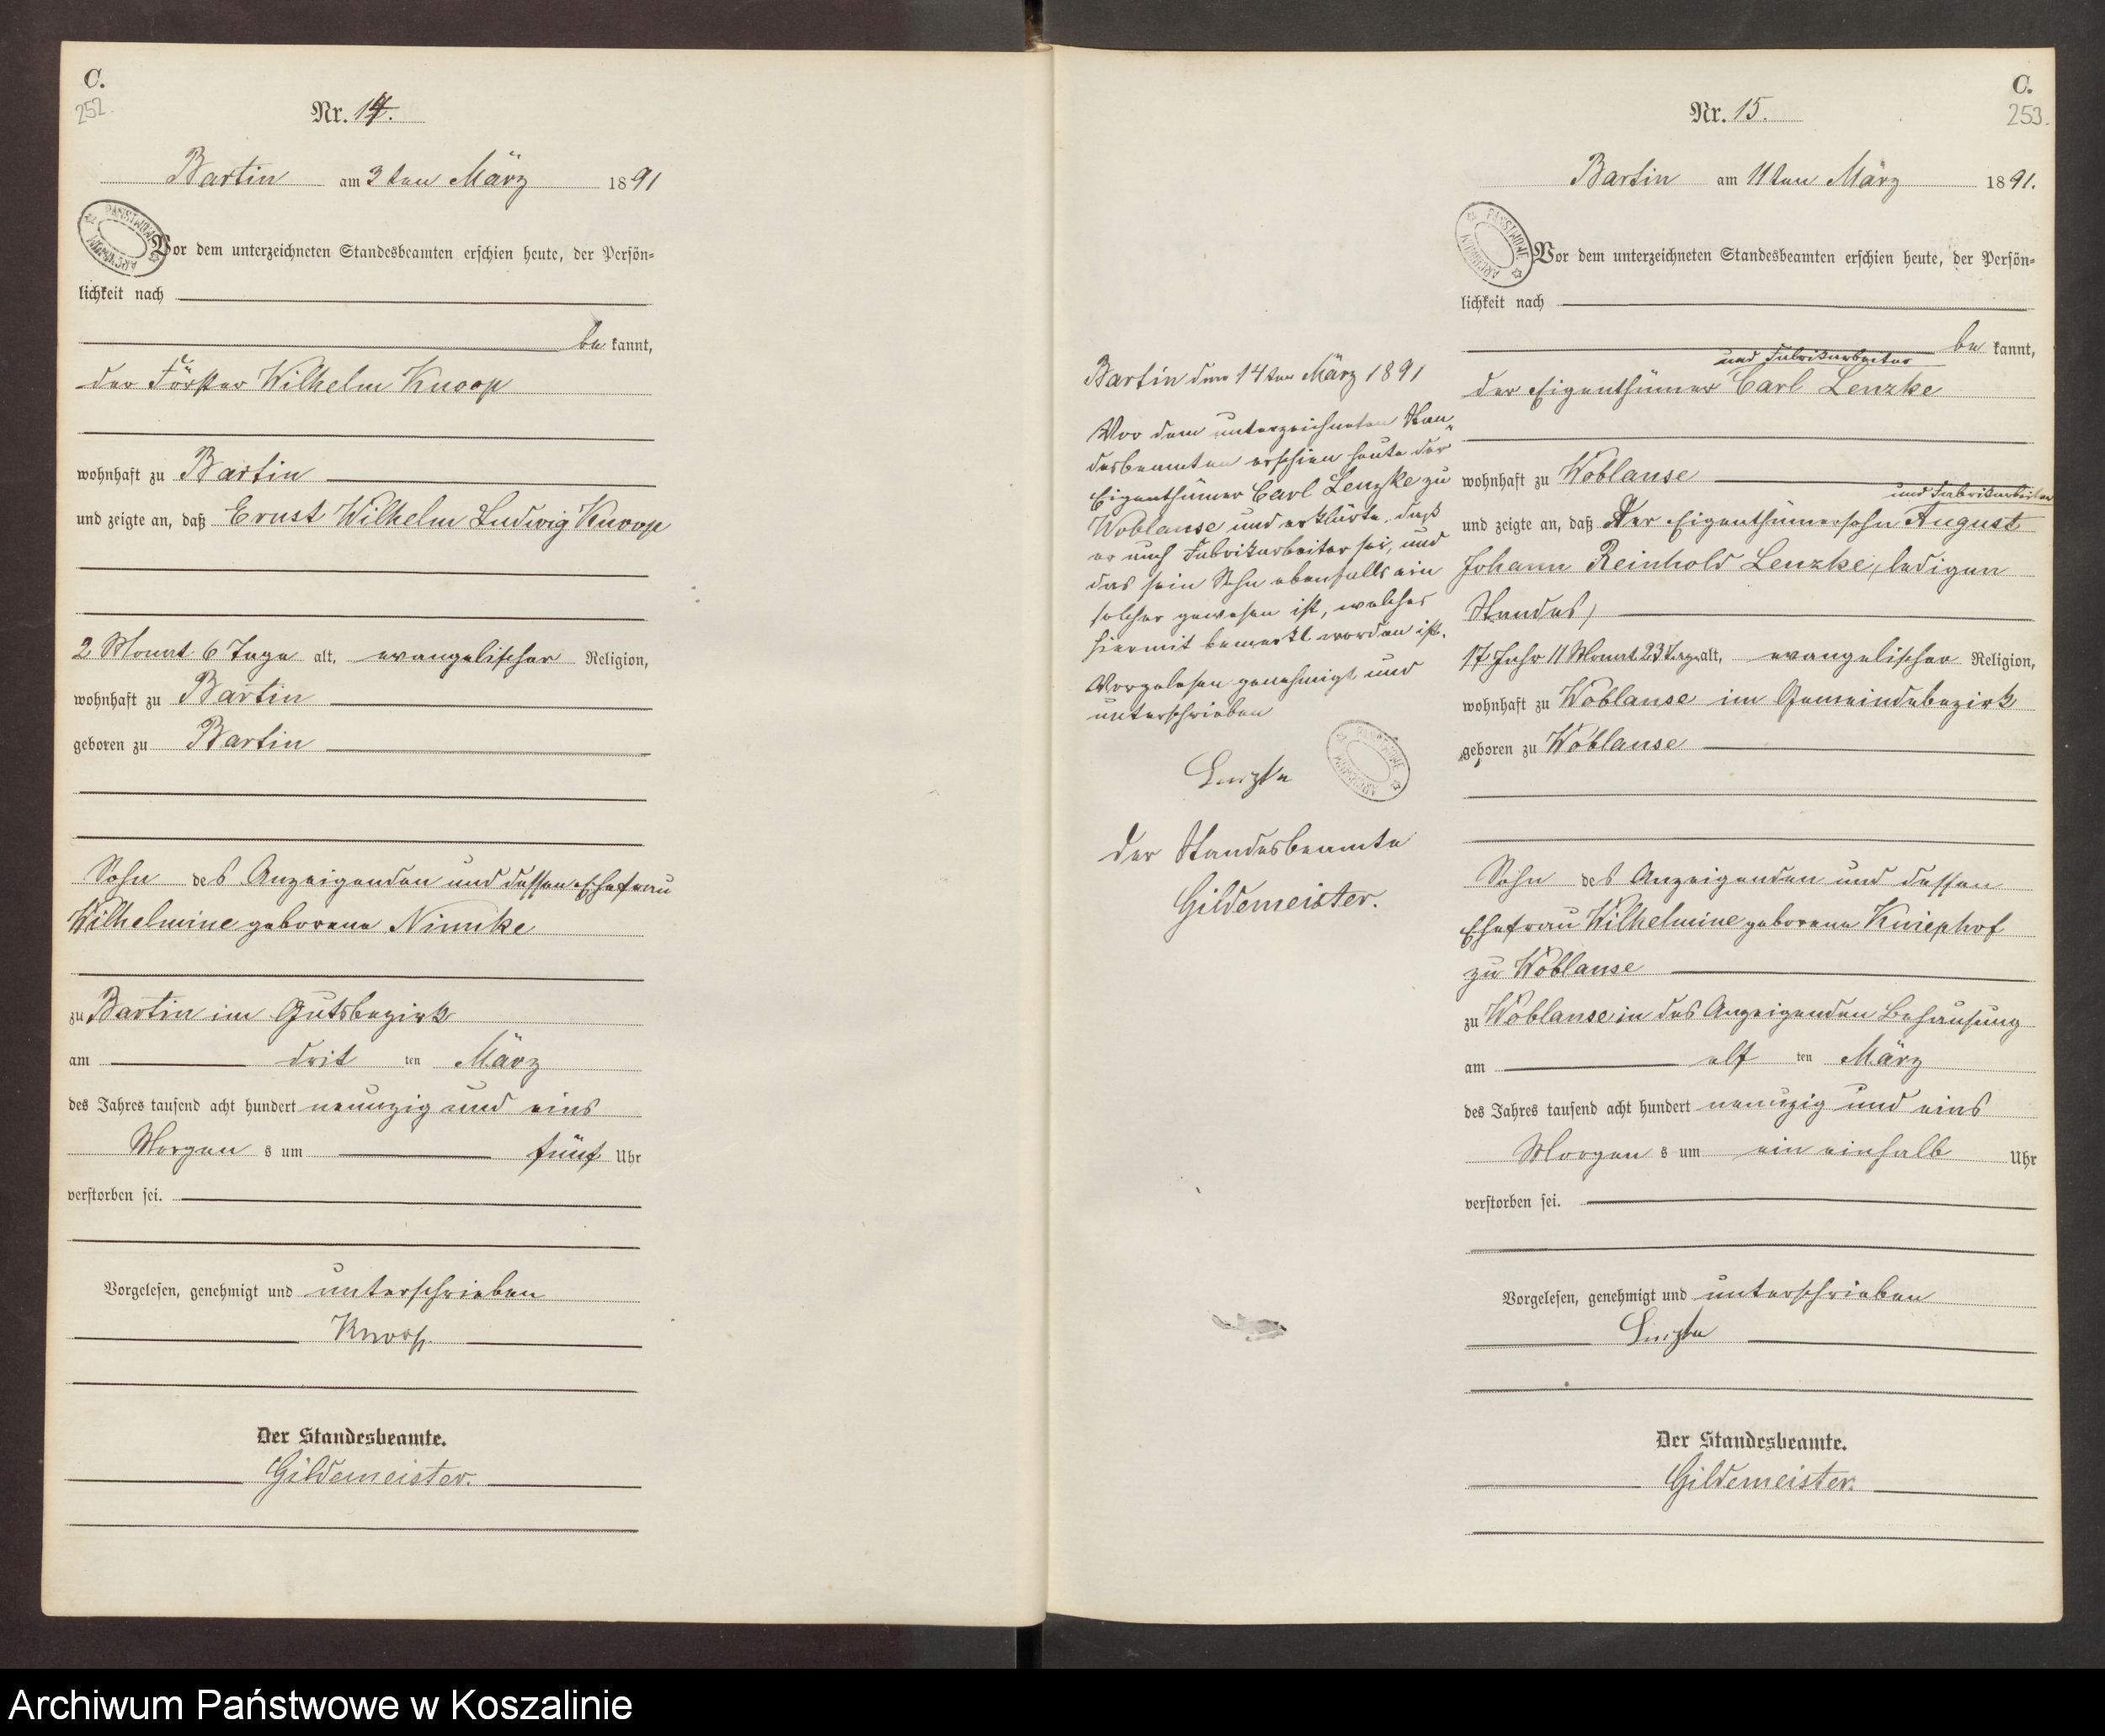 C.
252.
Nr. 14.
Bartin am 3ten März 1891
PAŃSTWOWE ARCHIWUM
Vor dem unterzeichneten Standesbeamten erschien heute, der Persön-
lichkeit nach
be kannt,
der Förster Wilhelm Knoop
wohnhaft zu Bartin
und zeigte an, daß Ernst Wilhelm Ludwig Knoop
2 Monat 6 Tage alt, evangelischer Religion,
wohnhaft zu Bartin
geboren zu Bartin
Sohn des Anzeigenden und dessen Ehefrau
Wilhelmine geborene Nimke
zu Bartin im Gutsbezirk
am drit ten März
des Jahres tausend acht hundert neunzig und eins
Morgen s um fünf Uhr
verstorben sei.
Vorgelesen, genehmigt und unterschrieben
Knoop.
Der Standesbeamte.
Gildemeister.
Bartin den 14ten März 1891
Vor dem unterzeichneten Stan-
desbeamten erschien heute der
Eigenthümer Carl Lenzke zu
Woblanse und erklärte, daß
er auch Fabrikarbeiter sei, und
das sein Sohn ebenfalls ein
solcher gewesen ist, welches
hiermit bemerkt worden ist.
Vorgelesen genehmigt und
unterschrieben
Lenzke
PAŃSTWOWE ARCHIWUM
Der Standesbeamte
Gildemeister.
C.
253.
Nr. 15.
Bartin am 11ten März 1891.
PAŃSTWOWE ARCHIWUM
Vor dem unterzeichneten Standesbeamten erschien heute, der Persön-
lichkeit nach
be kannt,
und Fabrikarbeiter
der Eigenthümer Carl Lenzke
wohnhaft zu Woblanse
und Fabrikarbeiter
und zeigte an, daß Der Eigenthümersohn August
Johann Reinhold Lenzke, ledigen
Standes,
17 Jahr 11 Monat 23 Tage alt, evangelischer Religion,
wohnhaft zu Woblanse im Gemeindebezirk
geboren zu Woblanse
Sohn des Anzeigenden und dessen
Ehefrau Wilhelmine geborene Kniephof
zu Woblanse
zu Woblanse in des Anzeigenden Behausung
am elf ten März
des Jahres tausend acht hundert neunzig und eins
Morgen s um ein einhalb Uhr
verstorben sei.
Vorgelesen, genehmigt und unterschrieben
Lenzke
Der Standesbeamte.
Gildemeister.
Archiwum Państwowe w Koszalinie